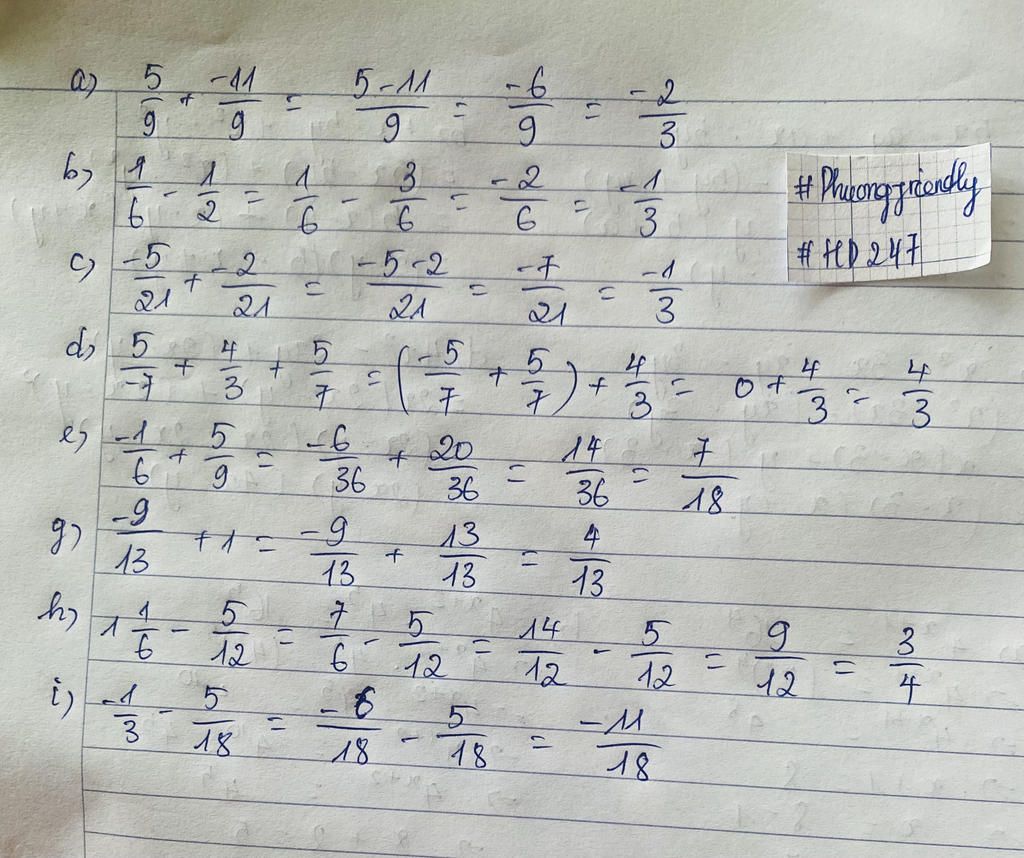 a) 5/9 + -11/9 = 5-11/9 = -6/9 = -2/3
b) 1/6 - 1/2 = 1/6 - 3/6 = -2/6 = -1/3
#Phuongfriendly
#HD247
c) -5/21 + -2/21 = -5-2/21 = -7/21 = -1/3
d) 5/-7 + 4/3 + 5/7 = (-5/7 + 5/7) + 4/3 = 0 + 4/3 = 4/3
e) -1/6 + 5/9 = -6/36 + 20/36 = 14/36 = 7/18
g) -9/13 + 1 = -9/13 + 13/13 = 4/13
h) 1 1/6 - 5/12 = 7/6 - 5/12 = 14/12 - 5/12 = 9/12 = 3/4
i) -1/3 - 5/18 = -6/18 - 5/18 = -11/18